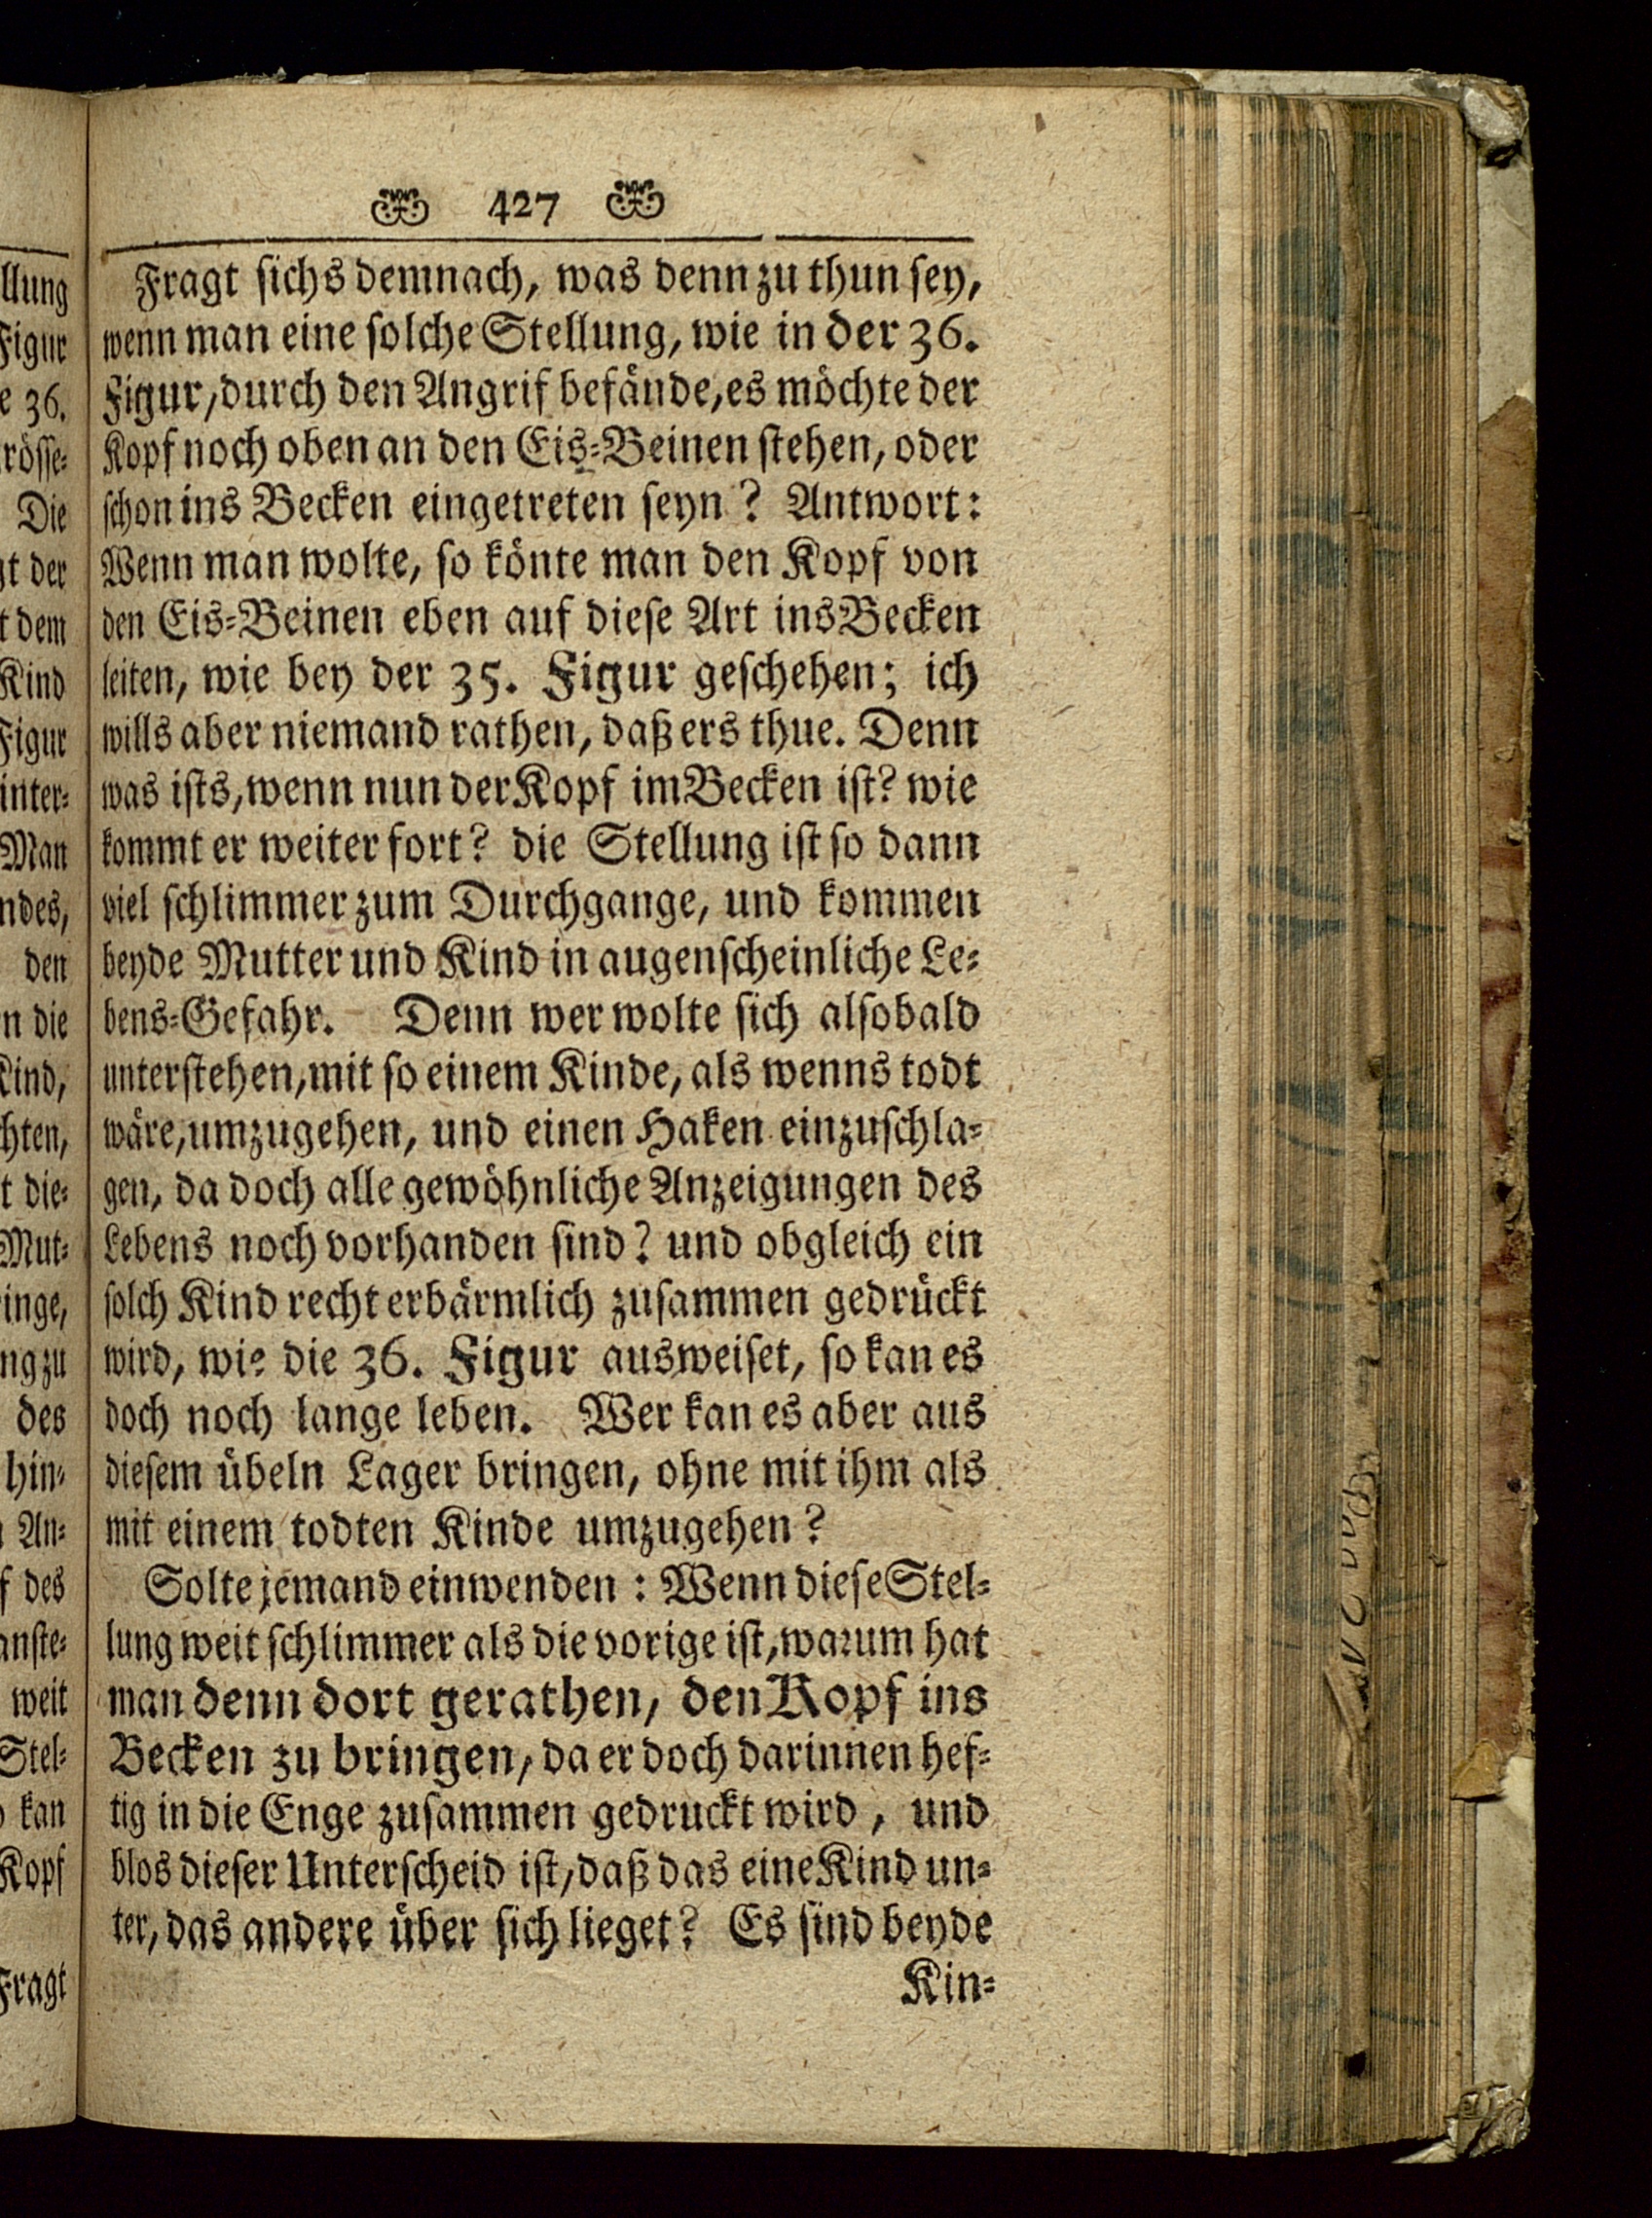 427
Fragt sichs demnach, was denn zu thun sey,
wenn man eine solche Stellung, wie in der 36.
Figur, durch den Angrif befände, es möchte der
Kopf noch oben an den Eis-Beinen stehen, oder
schon ins Becken eingetreten seyn? Antwort:
Wenn man wolte, so könte man den Kopf von
den Eis-Beinen eben auf diese Art ins Becken
leiten, wie bey der 35. Figur geschehen; ich
wills aber niemand rathen, daß ers thue. Denn
was ists, wenn nun der Kopf im Becken ist? wie
kommt er weiter fort? die Stellung ist so dann
viel schlimmer zum Durchgange, und kommen
beyde Mutter und Kind in augenscheinliche Le-
bens-Gefahr. Denn wer wolte sich alsobald
unterstehen, mit so einem Kinde, als wenns todt
wäre, umzugehen, und einen Haken einzuschla-
gen, da doch alle gewöhnliche Anzeigungen des
Lebens noch vorhanden sind? und obgleich ein
solch Kind recht erbärmlich zusammen gedrückt
wird, wie die 36. Figur ausweiset, so kan es
doch noch lange leben. Wer kan es aber aus
diesem übeln Lager bringen, ohne mit ihm als
mit einem todten Kinde umzugehen?
Solte jemand einwenden: Wenn diese Stel-
lung weit schlimmer als die vorige ist, warum hat
man denn dort gerathen, den Kopf ins
Becken zu bringen, da er doch darinnen hef-
tig in die Enge zusammen gedruckt wird, und
blos dieser Unterscheid ist, daß das eine Kind un-
ter, das andere über sich lieget? Es sind beyde
Kin-